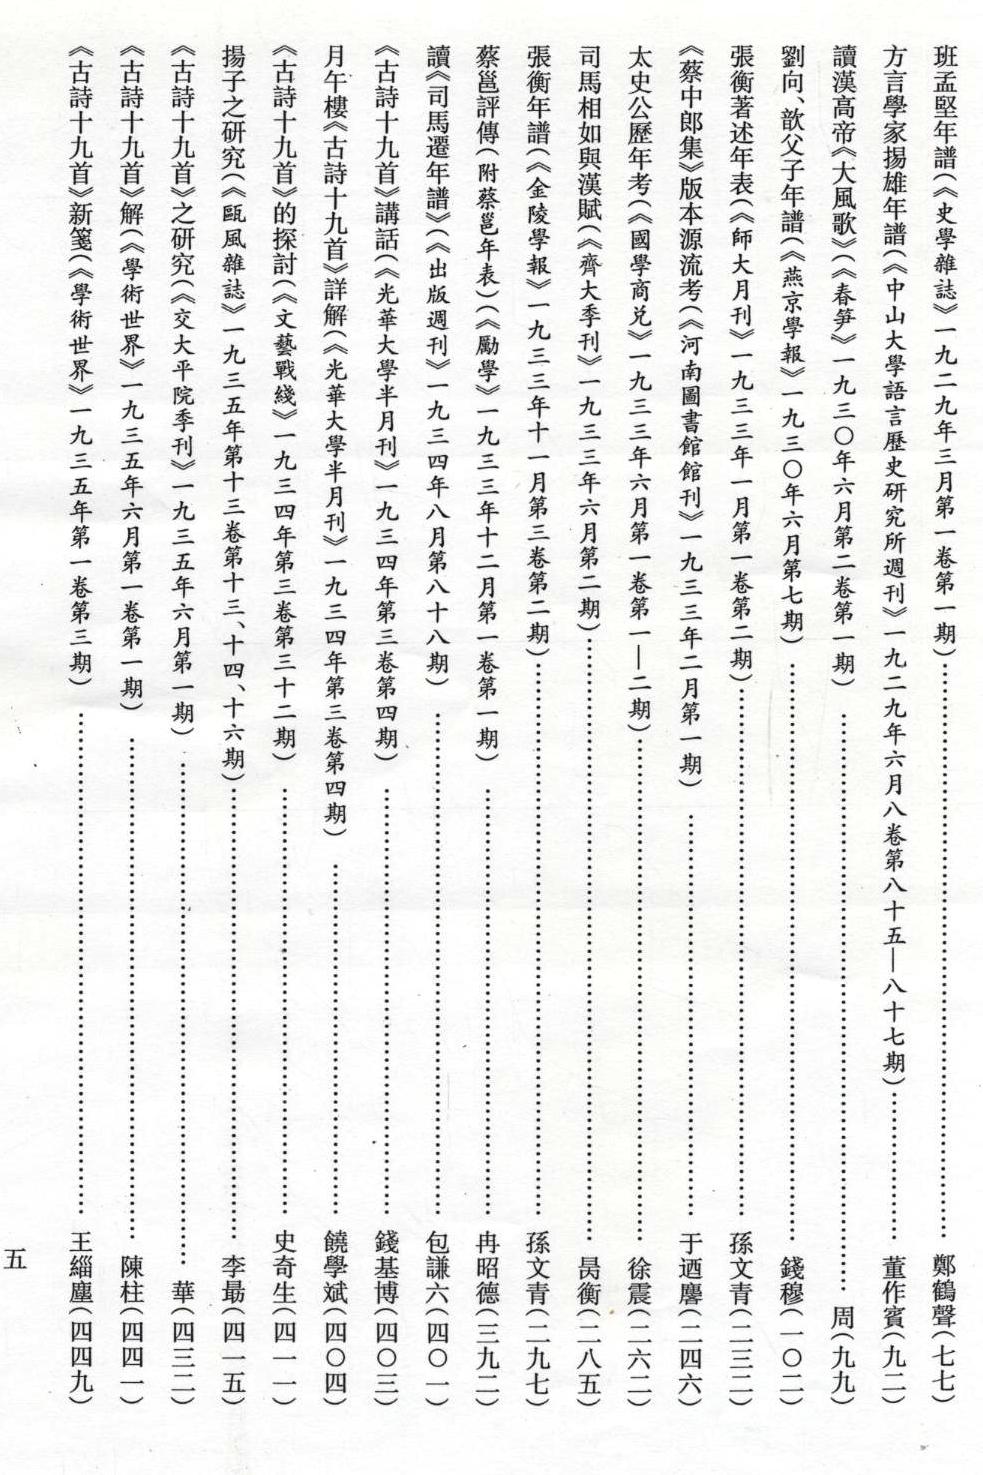 班孟堅年譜(《史學雜誌》一九二九年三月第一卷第一期)……鄭鶴聲(七七)
方言學家揚雄年譜(《中山大學語言歷史研究所週刊》一九二九年六月八卷第八十五—八十七期)……董作賓(九二)
讀漢高帝《大風歌》(《春笋》一九三〇年六月第二卷第一期)……周(九九)
劉向、歆父子年譜(《燕京學報》一九三〇年六月第七期)……錢穆(一〇二)
張衡著述年表(《師大月刊》一九三三年一月第一卷第二期)……孫文青(二三二)
《蔡中郎集》版本源流考(《河南圖書館館刊》一九三三年二月第一期)……于迺麐(二四六)
太史公歷年考(《國學商兌》一九三三年六月第一卷第一—二期)……徐震(二六二)
司馬相如與漢賦(《齊大季刊》一九三三年六月第二期)……昺衡(二八五)
張衡年譜(《金陵學報》一九三三年十一月第三卷第二期)……孫文青(二九七)
蔡邕評傳(附蔡邕年表)(《勵學》一九三三年十二月第一卷第一期)……冉昭德(三九二)
讀《司馬遷年譜》(《出版週刊》一九三四年八月第八十八期)……包謙六(四〇一)
《古詩十九首》講話(《光華大學半月刊》一九三四年第三卷第四期)……錢基博(四〇三)
月午樓《古詩十九首》詳解(《光華大學半月刊》一九三四年第三卷第四期)……饒學斌(四〇四)
《古詩十九首》的探討(《文藝戰綫》一九三四年第三卷第三十二期)……史奇生(四一一)
揚子之研究(《甌風雜誌》一九三五年第十三卷第十三、十四、十六期)……李勗(四一五)
《古詩十九首》之研究(《交大平院季刊》一九三五年六月第一期)……華(四三二)
《古詩十九首》解(《學術世界》一九三五年六月第一卷第一期)……陳柱(四四一)
《古詩十九首》新箋(《學術世界》一九三五年第一卷第三期)……王緇塵(四四九)
五